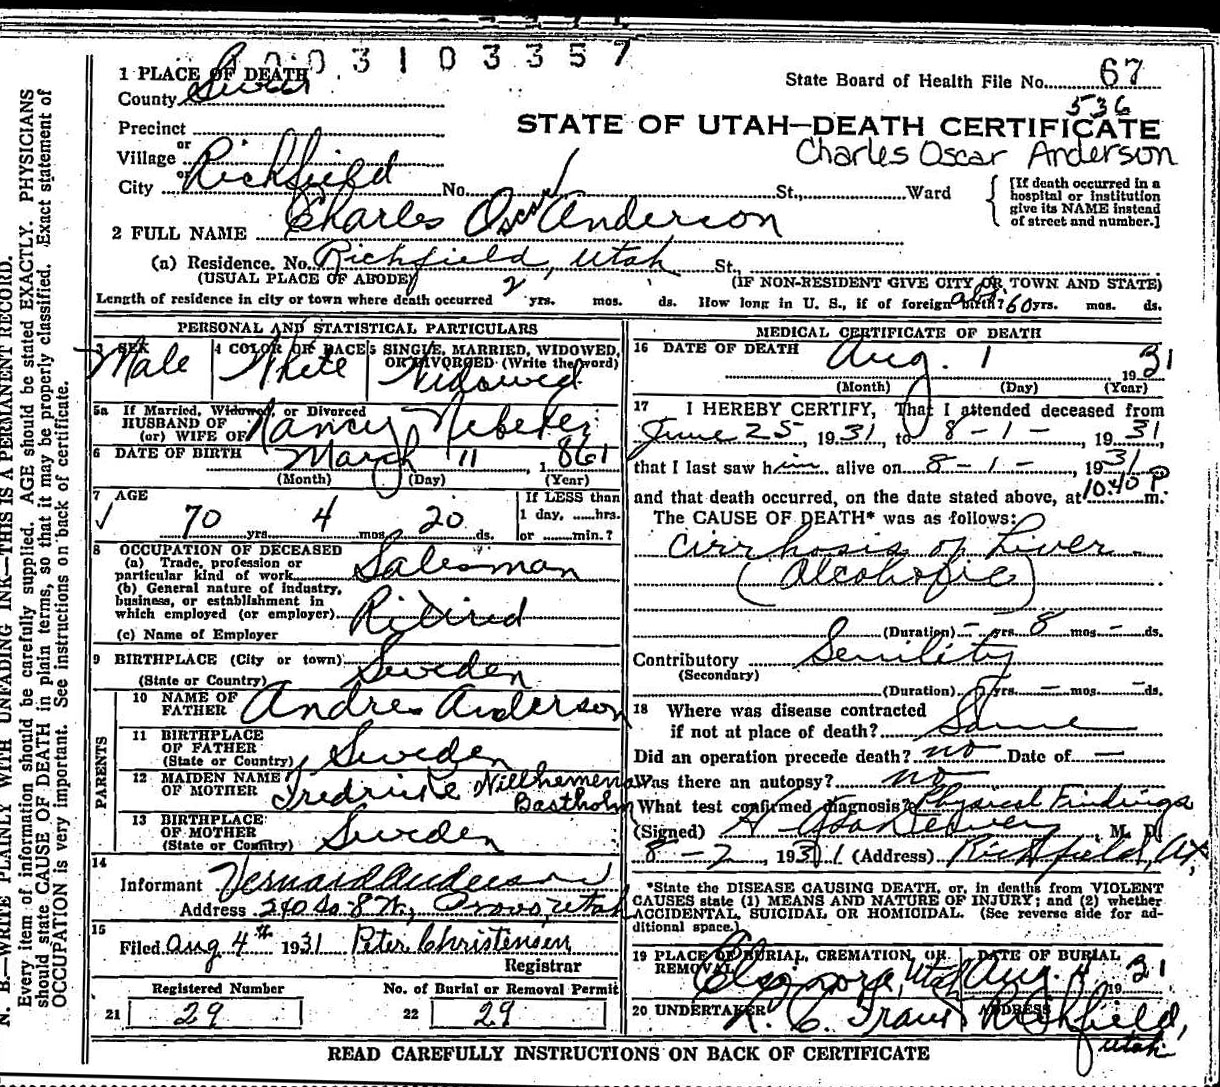 0 0 3 1 0 3 3 5 7
1 PLACE OF DEATH
County Sevier
State Board of Health File No. 67
536
STATE OF UTAH—DEATH CERTIFICATE
Charles Oscar Anderson
Precinct
or
Village
or
City Richfield No. St., Ward
[If death occurred in a
hospital or institution
give its NAME instead
of street and number.]
2 FULL NAME Charles Oscar Anderson
(a) Residence. No. Richfield, Utah St.,
(USUAL PLACE OF ABODE) (IF NON-RESIDENT GIVE CITY OR TOWN AND STATE)
Length of residence in city or town where death occurred 2 yrs. mos. ds. How long in U. S., if of foreign birth? 60 yrs. mos. ds.
PERSONAL AND STATISTICAL PARTICULARS
3 SEX
Male
4 COLOR OR RACE
White
5 SINGLE, MARRIED, WIDOWED,
OR DIVORCED (Write the word)
Widowed
5a If Married, Widowed, or Divorced
HUSBAND OF
(or) WIFE OF Nancy Nebeker
6 DATE OF BIRTH March 11, 1861
(Month) (Day) (Year)
7 AGE
70 yrs. 4 mos. 20 ds.
If LESS than
1 day, ......hrs.
or ......min.?
8 OCCUPATION OF DECEASED
(a) Trade, profession or
particular kind of work Salesman
(b) General nature of industry,
business, or establishment in
which employed (or employer) Ritired
(c) Name of Employer
9 BIRTHPLACE (City or town)
(State or Country) Sweden
PARENTS
10 NAME OF
FATHER Andres Anderson
11 BIRTHPLACE
OF FATHER
(State or Country) Sweden
12 MAIDEN NAME
OF MOTHER Fredrike Nillhemena
Bastholm
13 BIRTHPLACE
OF MOTHER
(State or Country) Sweden
14
Informant Vernard Anderson
Address 240 So. 8 W., Provo, Utah
15
Filed Aug 4th 1931 Peter Christensen
Registrar
Registered Number
21 29
No. of Burial or Removal Permit
22 29
MEDICAL CERTIFICATE OF DEATH
16 DATE OF DEATH Aug. 1 1931
(Month) (Day) (Year)
17 I HEREBY CERTIFY, That I attended deceased from
June 25, 1931, to 8-1-, 1931,
that I last saw him alive on 8-1-, 1931
and that death occurred, on the date stated above, at 10:40 P m.
The CAUSE OF DEATH* was as follows:
Cirrhosis of Liver
(Alcoholic)
(Duration) - yrs. 8 mos. - ds.
Contributory Senility
(Secondary)
(Duration) yrs. - mos. - ds.
18 Where was disease contracted
if not at place of death? Same
Did an operation precede death? no Date of —
Was there an autopsy? no
What test confirmed diagnosis? Physical Findings
(Signed) M. D.
8-2, 1931 (Address) Richfield, Ut,
*State the DISEASE CAUSING DEATH, or, in deaths from VIOLENT
CAUSES state (1) MEANS AND NATURE OF INJURY; and (2) whether
ACCIDENTAL, SUICIDAL OR HOMICIDAL. (See reverse side for additional space.)
19 PLACE OF BURIAL, CREMATION, OR
REMOVAL Elsinore, Utah
DATE OF BURIAL
Aug. 4 1931
20 UNDERTAKER
ADDRESS
Richfield,
Utah
READ CAREFULLY INSTRUCTIONS ON BACK OF CERTIFICATE
N. B.—WRITE PLAINLY WITH UNFADING INK—THIS IS A PERMANENT RECORD.
Every item of information should be carefully supplied. AGE should be stated EXACTLY. PHYSICIANS
should state CAUSE OF DEATH in plain terms, so that it may be properly classified. Exact statement of
OCCUPATION is very important. See instructions on back of certificate.